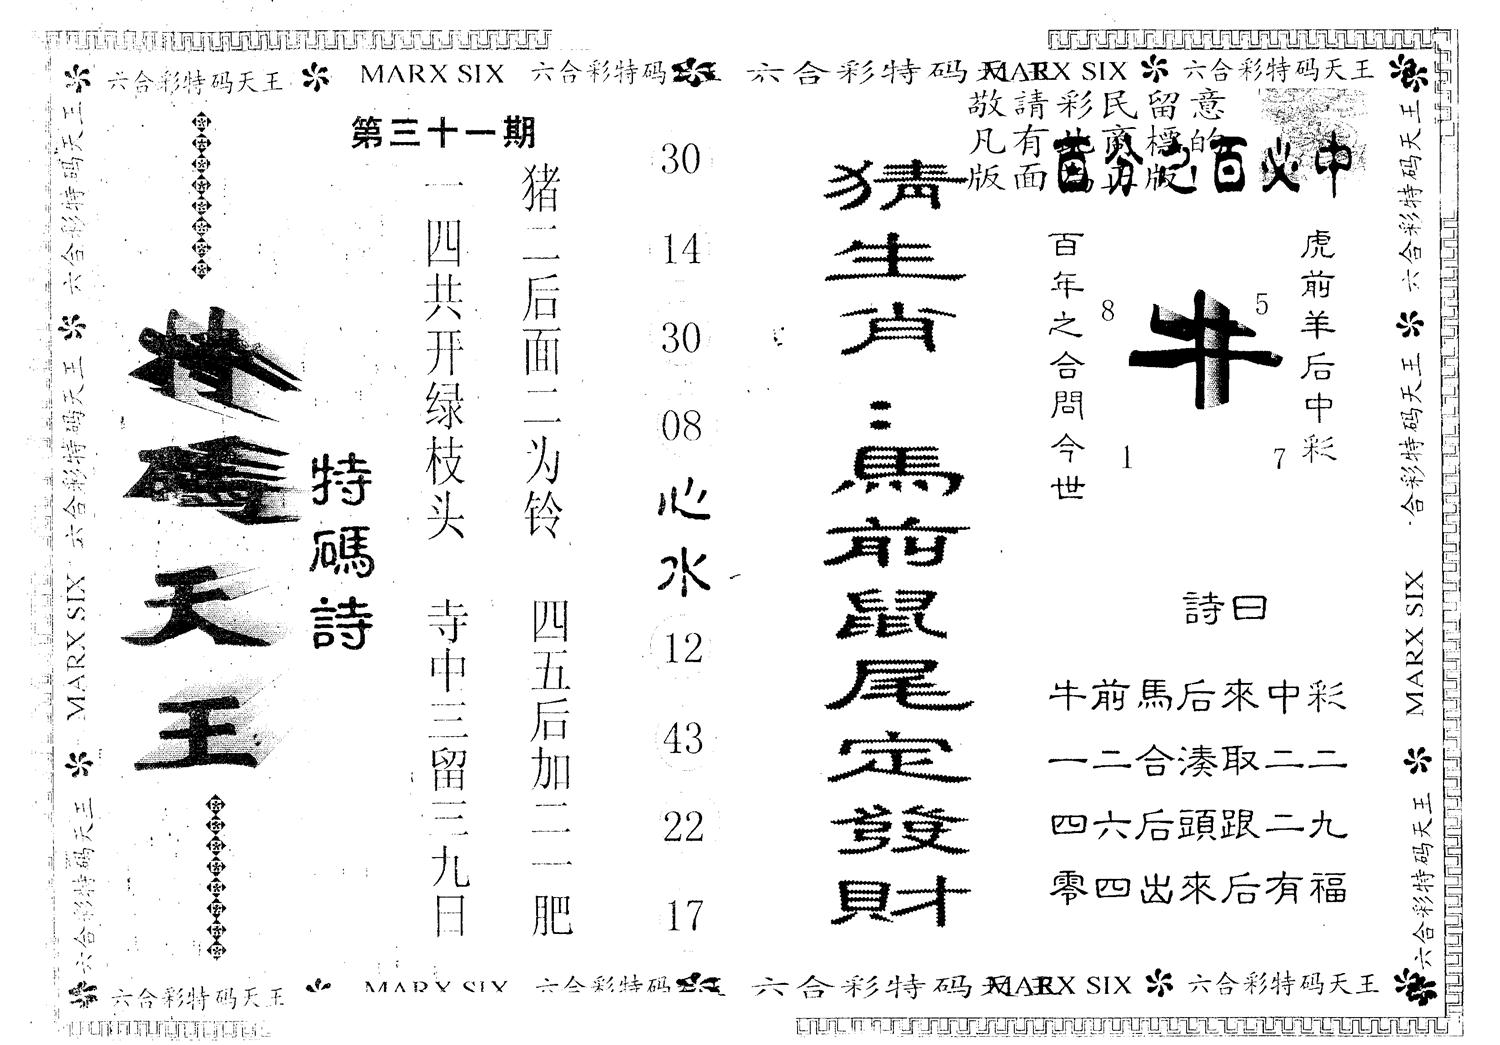 六合彩特码天王
MARX SIX
六合彩特码
六合彩特码天王
MARX SIX
六合彩特码天王
敬請彩民留意
凡有此商標的
版面為正版!
百分之百必中
第三十一期
特碼天王
特碼詩
一四共开绿枝头
寺中三留三九日
猪二后面二为铃
四五后加二一肥
30
14
30
08
心水
12
43
22
17
猜生肖:馬前鼠尾定發財
虎前羊后中彩
牛
8
5
1
7
百年之合問今世
詩曰
牛前馬后來中彩
一二合湊取二二
四六后頭跟二九
零四出來后有福
六合彩特码天王
六合彩特码天王
MARX SIX
六合彩特码天王
六合彩特码天王
合彩特码天王
MARX SIX
六合彩特码天王
六合彩特码天王
MARX SIX
六合彩特码
六合彩特码天王
MARX SIX
六合彩特码天王